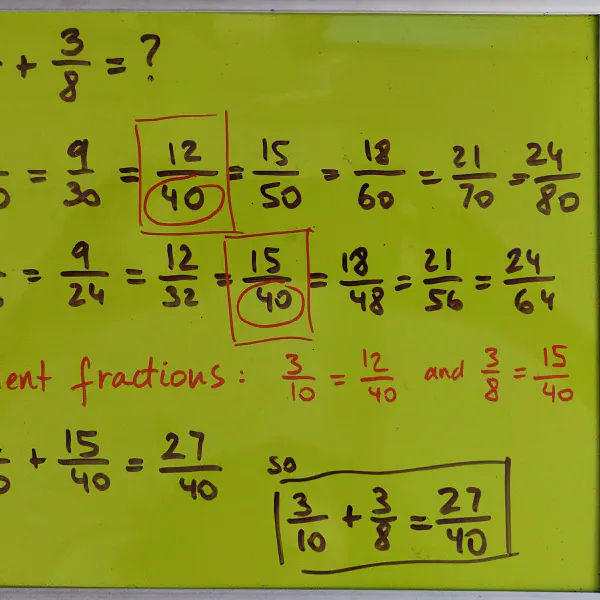 + 3/8 = ?
= 9/30 = 12/40 = 15/50 = 18/60 = 21/70 = 24/80
= 9/24 = 12/32 = 15/40 = 18/48 = 21/56 = 24/64
ent fractions: 3/10 = 12/40 and 3/8 = 15/40
+ 15/40 = 27/40
so
3/10 + 3/8 = 27/40